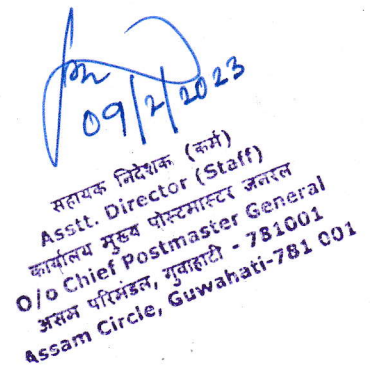 09/2/2023
सहायक निदेशक (कर्म)
Asstt. Director (Staff)
कार्यालय मुख्य पोस्टमास्टर जनरल
O/o Chief Postmaster General
असम परिमंडल, गुवाहाटी - 781001
Assam Circle, Guwahati-781 001